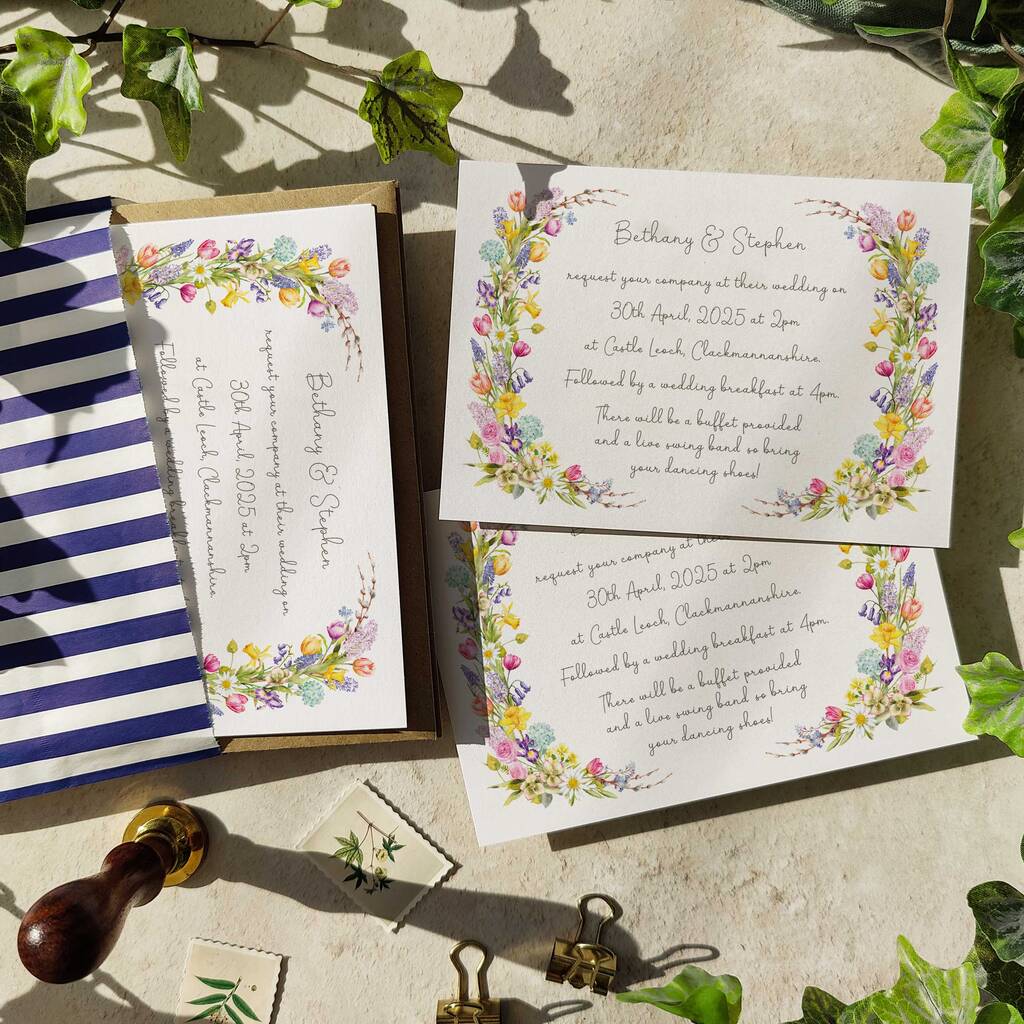 Bethany & Stephen
request your company at their wedding on
30th April, 2025 at 2pm
at Castle Leoch, Clackmannanshire.
Followed by a wedding breakfast at 4pm.
There will be a buffet provided
and a live swing band so bring
your dancing shoes!
Bethany & Stephen
request your company at their wedding on
30th April, 2025 at 2pm
at Castle Leoch, Clackmannanshire.
Followed by a wedding
request your company at the
30th April, 2025 at 2pm
at Castle Leoch, Clackmannanshire.
Followed by a wedding breakfast at 4pm.
There will be a buffet provided
and a live swing band so bring
your dancing shoes!